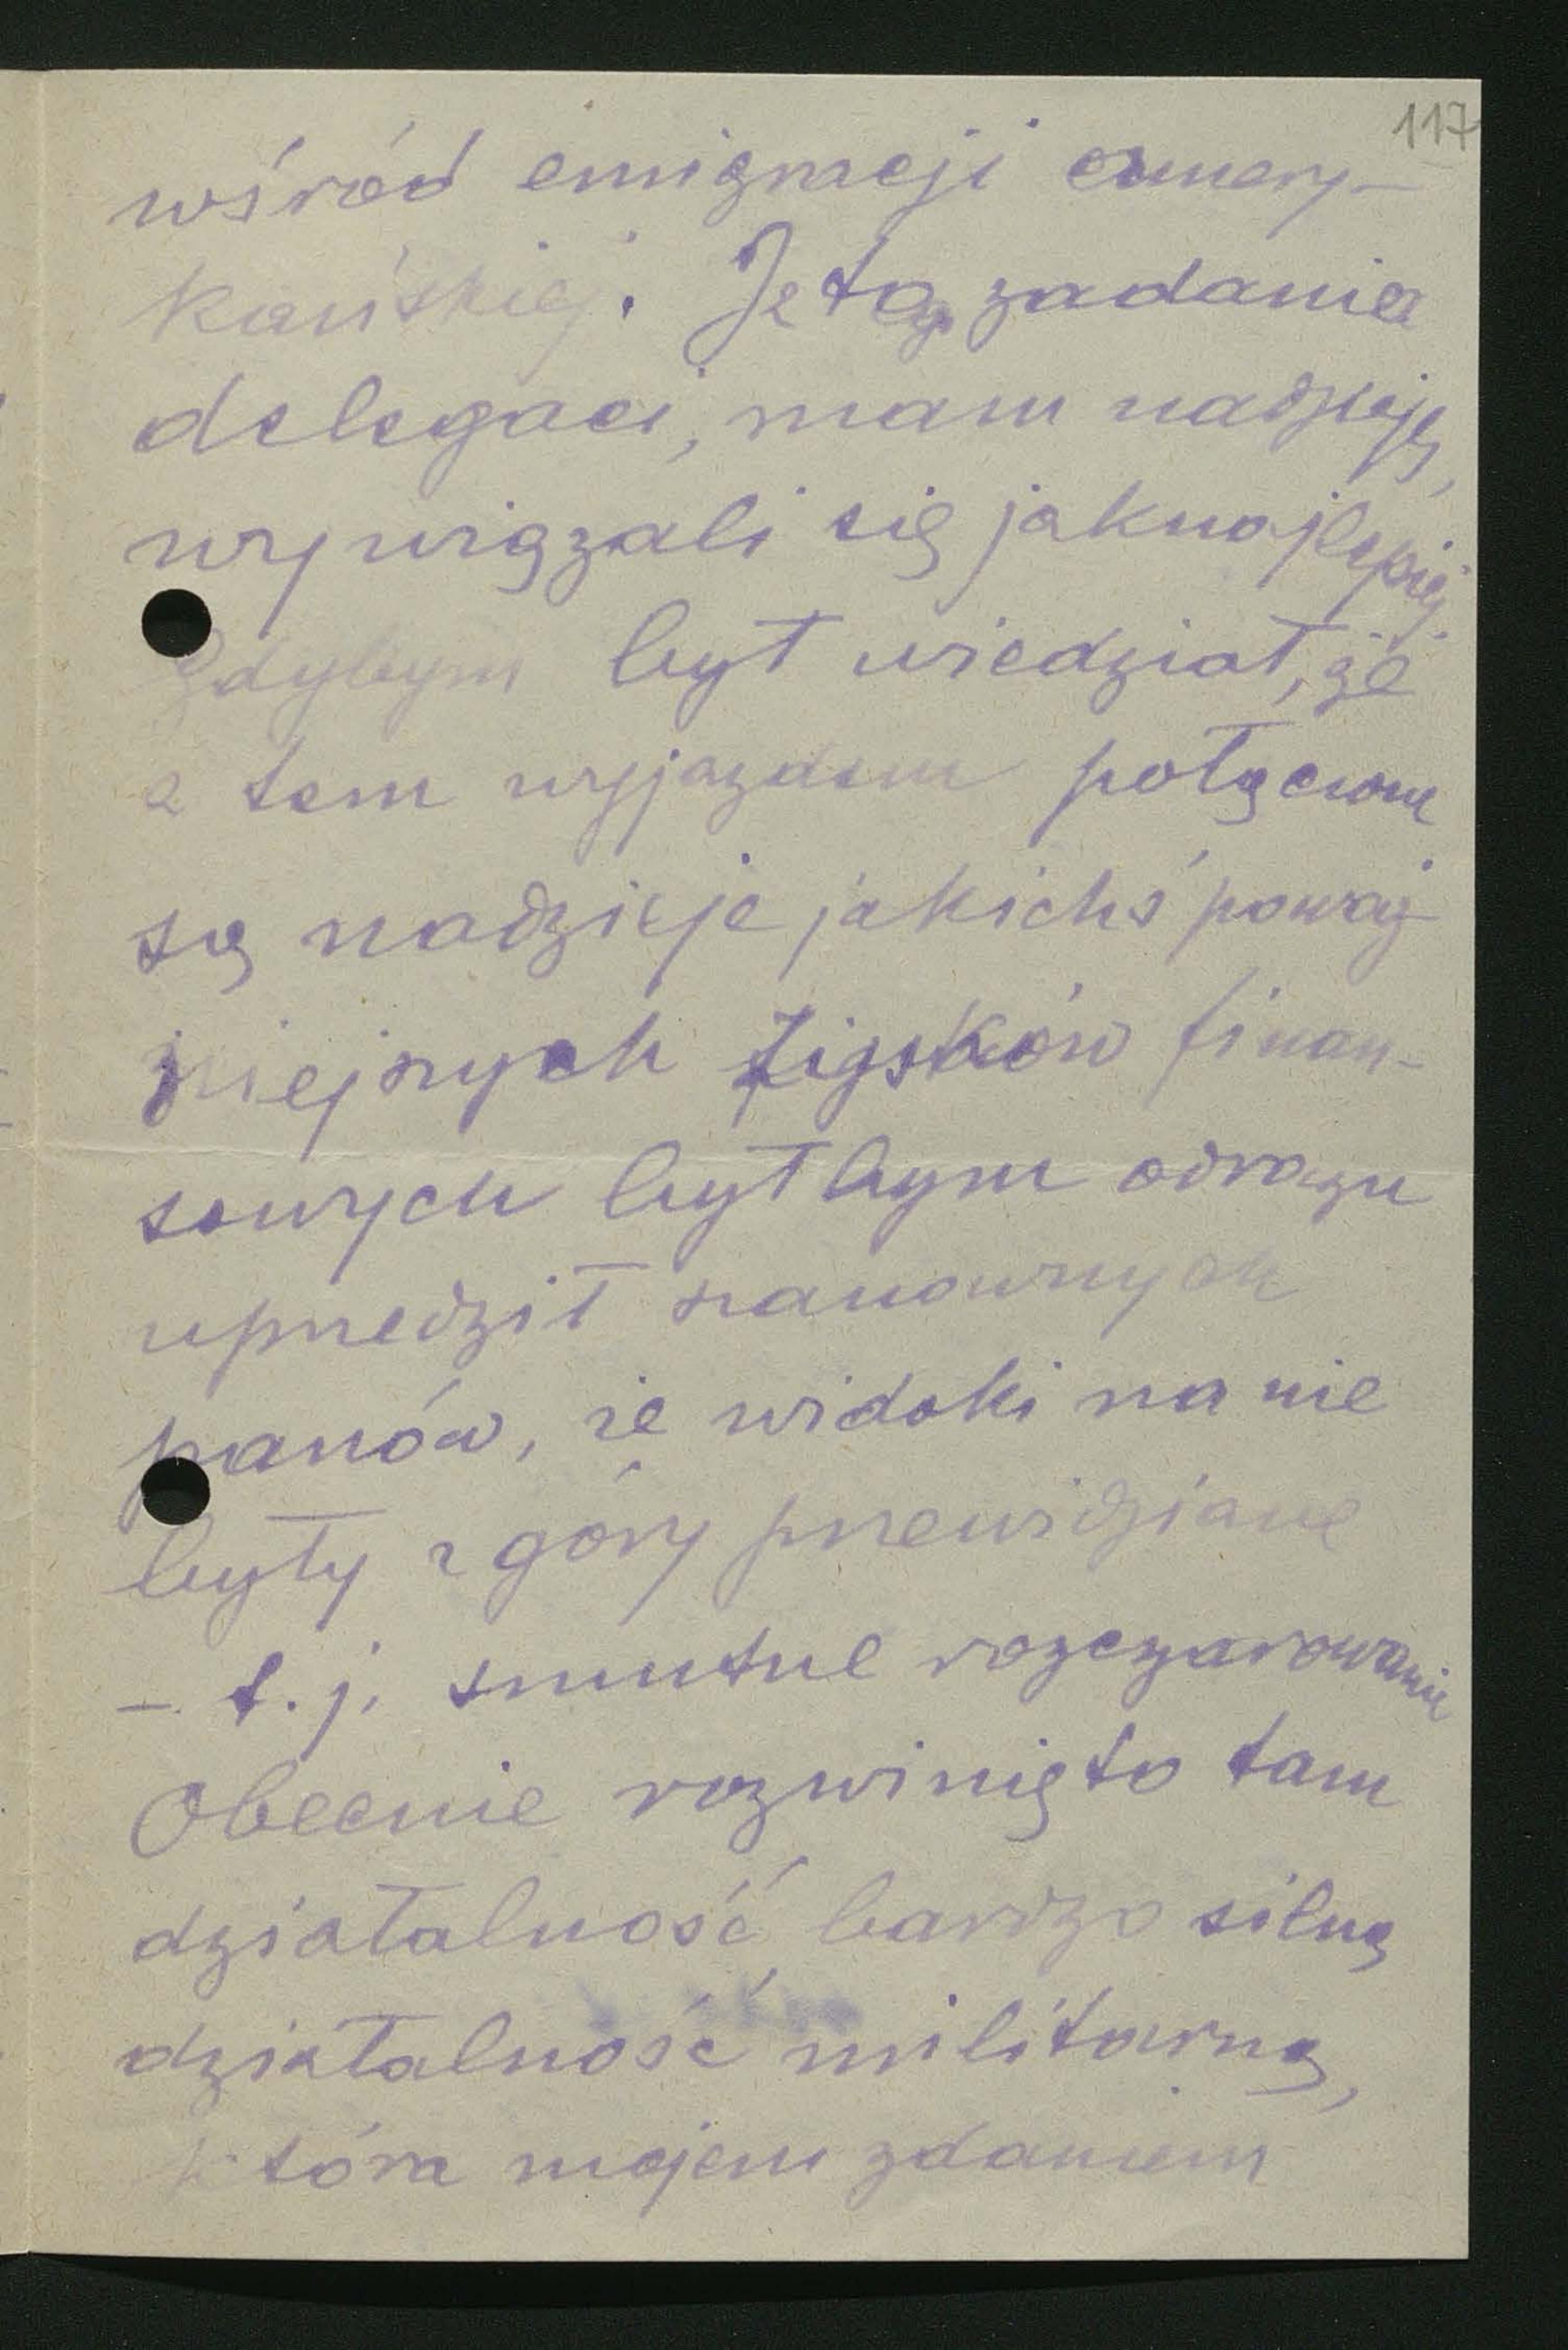 117
wśród emigracji amery-
kańskiej. Z tego zadania
delegaci, mam nadzieję,
wywiązali się jaknajlepiej.
Gdybym był wiedział, że
z tem wyjazdem połączone
są nadzieje jakichś poważ-
niejszych zysków finan-
sowych byłbym odrazu
uprzedził szanownych
panów, że widoki na nie
były z góry przewidziane
– t. j. smutne rozczarowanie
Obecnie rozwinięto tam
działalność bardzo silną
działalność militarną,
która mojem zdaniem